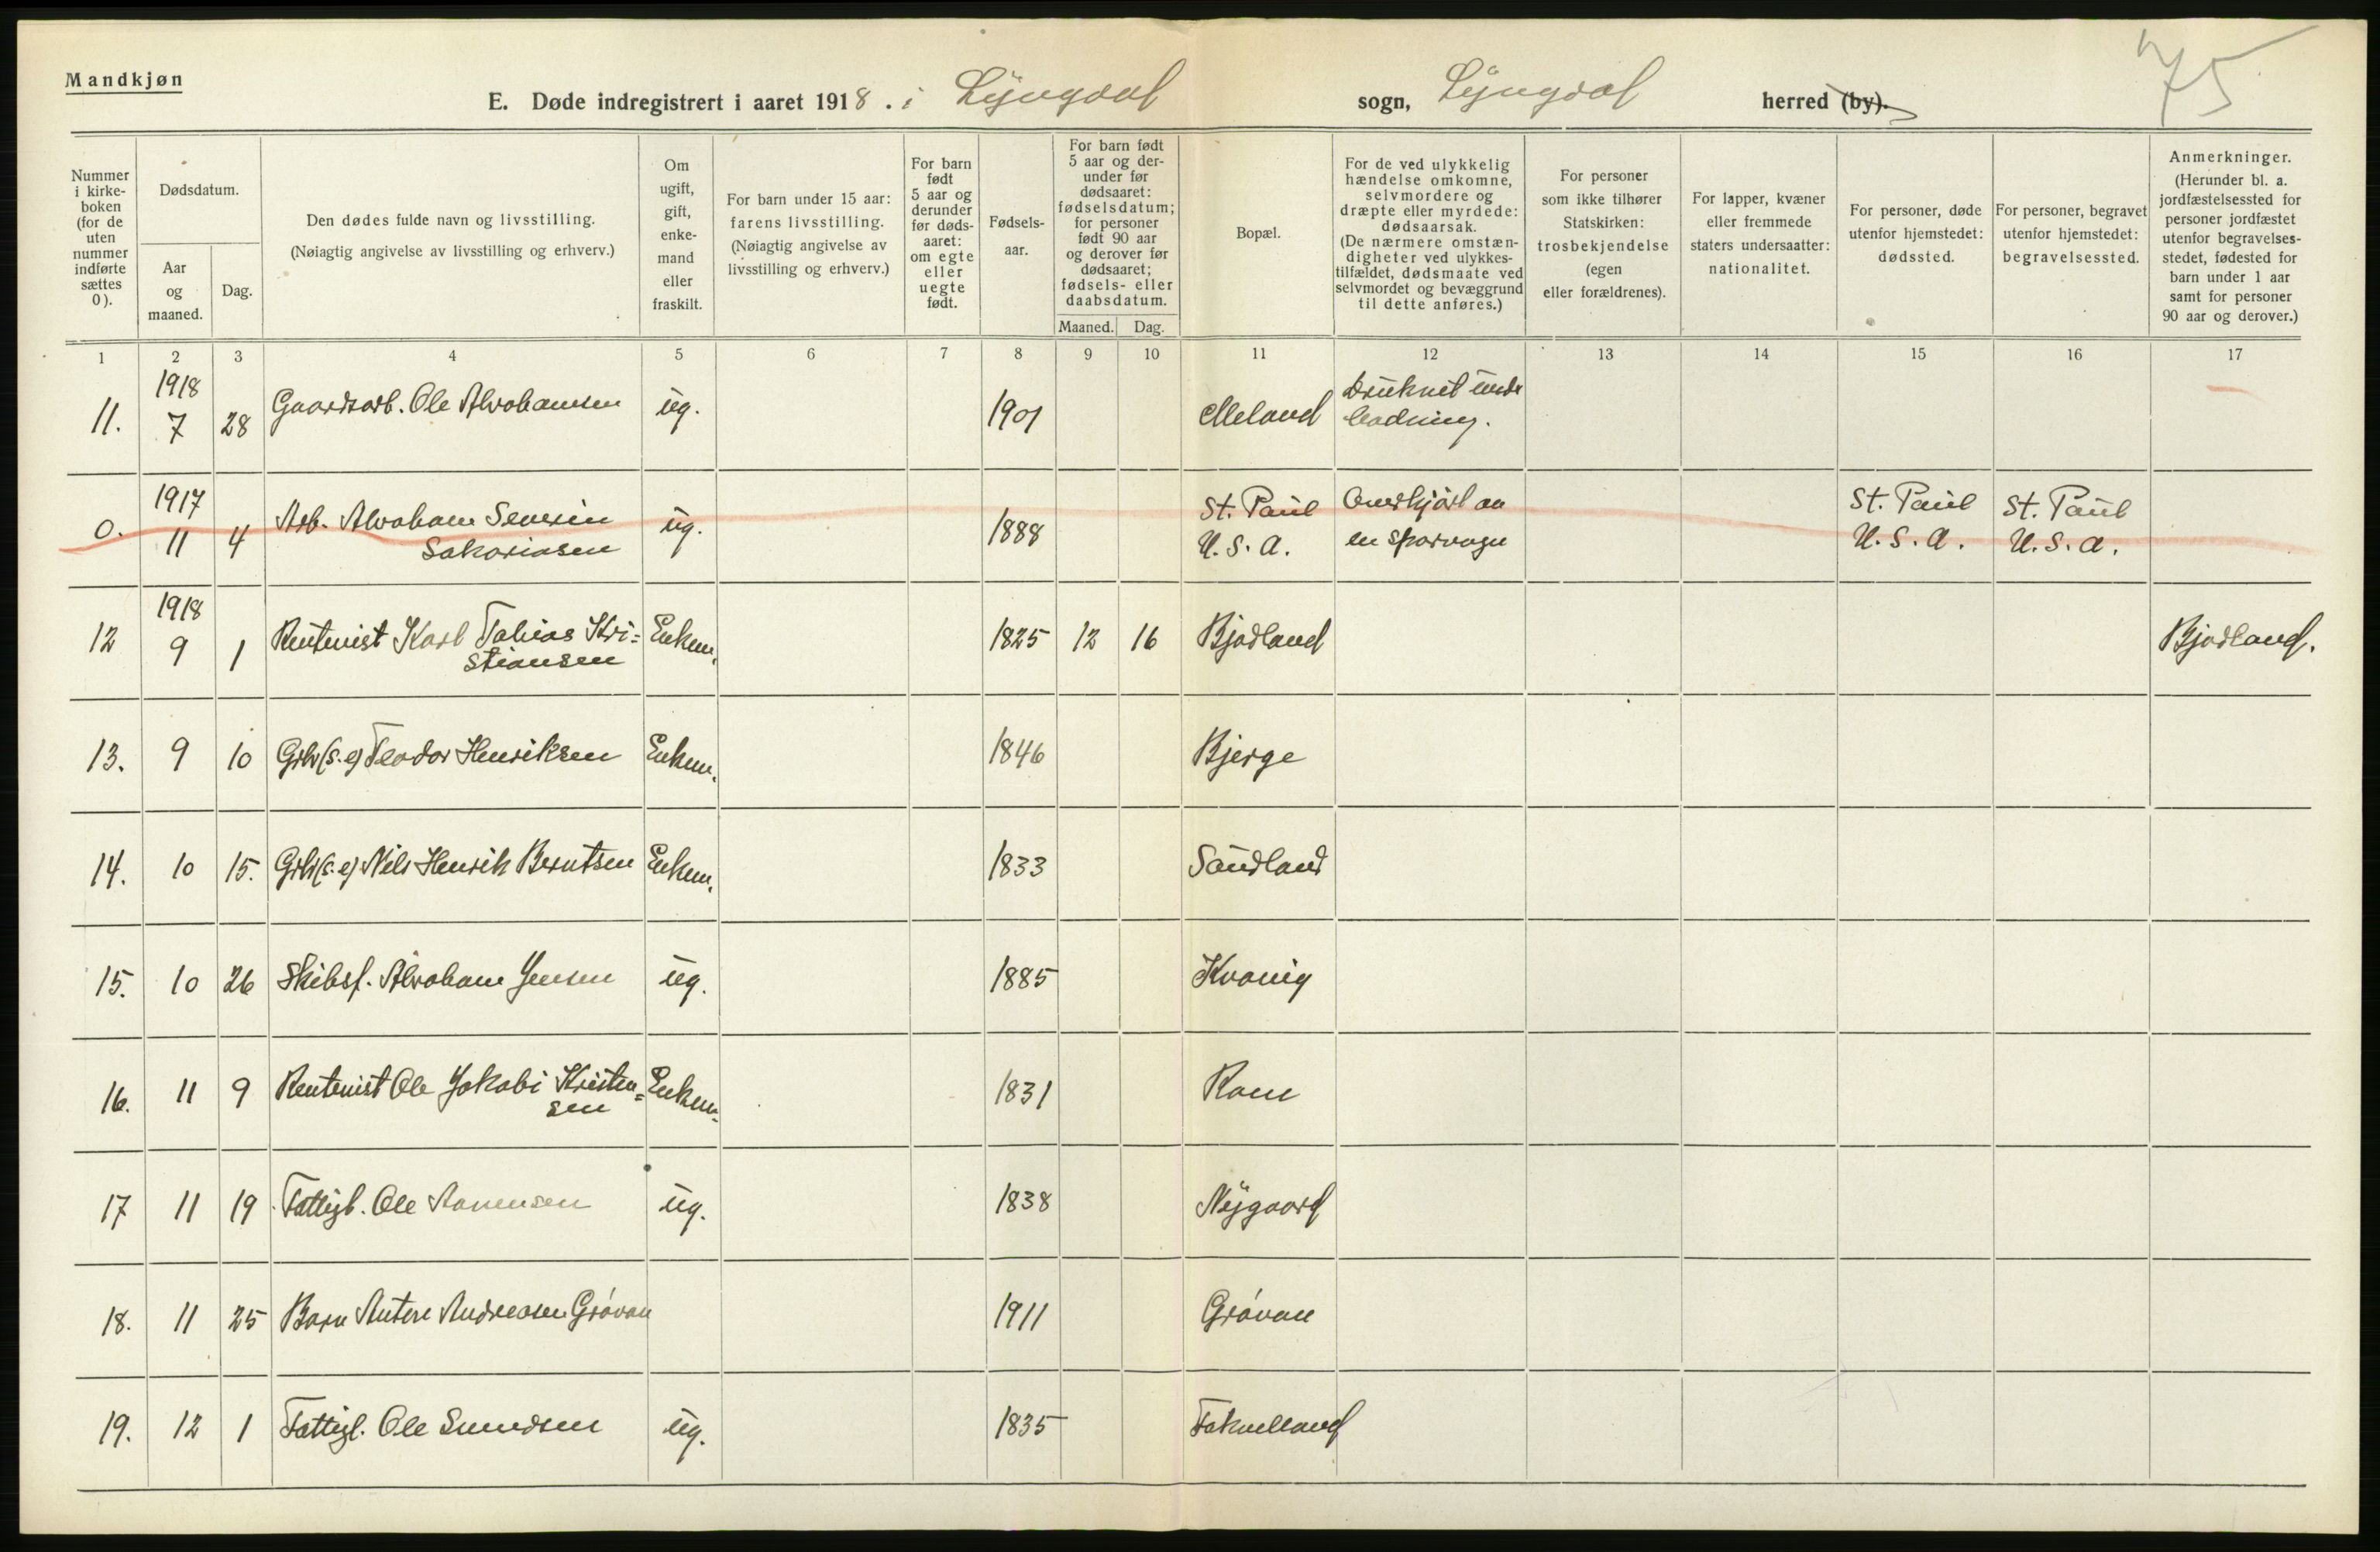 Mandkjøn
75
E. Døde indregistrert i aaret 1918. i Lyngdal sogn, Lyngdal herred (by).
Nummer
i kirke-
boken
(for de
uten
nummer
indførte
sættes
0).
Dødsdatum.
Aar
og
maaned.
Dag.
Den dødes fulde navn og livsstilling.
(Nøiagtig angivelse av livsstilling og erhverv.)
Om
ugift,
gift,
enke-
mand
eller
fraskilt.
For barn under 15 aar:
farens livsstilling.
(Nøiagtig angivelse av
livsstilling og erhverv.)
For barn
født
5 aar og
derunder
før døds-
aaret:
om egte
eller
uegte
født.
Fødsels-
aar.
For barn født
5 aar og der-
under før
dødsaaret:
fødselsdatum;
for personer
født 90 aar
og derover før
dødsaaret;
fødsels- eller
daabsdatum.
Maaned. Dag.
Bopæl.
For de ved ulykkelig
hændelse omkomne,
selvmordere og
dræpte eller myrdede:
dødsaarsak.
(De nærmere omstæn-
digheter ved ulykkes-
tilfældet, dødsmaate ved
selvmordet og bevæggrund
til dette anføres.)
For personer
som ikke tilhører
Statskirken:
trosbekjendelse
(egen
eller forældrenes).
For lapper, kvæner
eller fremmede
staters undersaatter:
nationalitet.
For personer, døde
utenfor hjemstedet:
dødssted.
For personer, begravet
utenfor hjemstedet:
begravelsessted.
Anmerkninger.
(Herunder bl. a.
jordfæstelsessted for
personer jordfæstet
utenfor begravelses-
stedet, fødested for
barn under 1 aar
samt for personer
90 aar og derover.)
1 2 3 4 5 6 7 8 9 10 11 12 13 14 15 16 17
1918
11. 7 28 Gaardsarb. Ole Abrahamsen ug. 1901 Meland Druknet unde
badning.
1917
0. 11 4 Arb. Abraham Severin
Sakariasen ug. 1888 St. Paul
U.S.A. Overkjørt av
en sporvogn St. Paul
U.S.A. St. Paul
U.S.A.
1918
12 9 1 Rentenist Karl Tobias Kri=
stiansen Enkem. 1825 12 16 Bjodland Bjodland.
13. 9 10 Grbr (s.e) Teodor Henriksen Enkem. 1846 Bjerge
14. 10 15. Grbr (s.e) Nils Henrik Berntsen Enkem. 1833 Sandland
15. 10 26 Skibsf. Abraham Jensen ug. 1885 Kvavig
16. 11 9 Rentenist Ole Jakobi Kristen=
sen Enkem. 1831 Rom
17 11 19 Fattigl. Ole Aanensen ug. 1838 Nygaard
18. 11 25 Barn Anton Andreasen Grøvan 1911 Grøvan
19. 12 1 Fattigl. Ole Svendsen ug. 1835